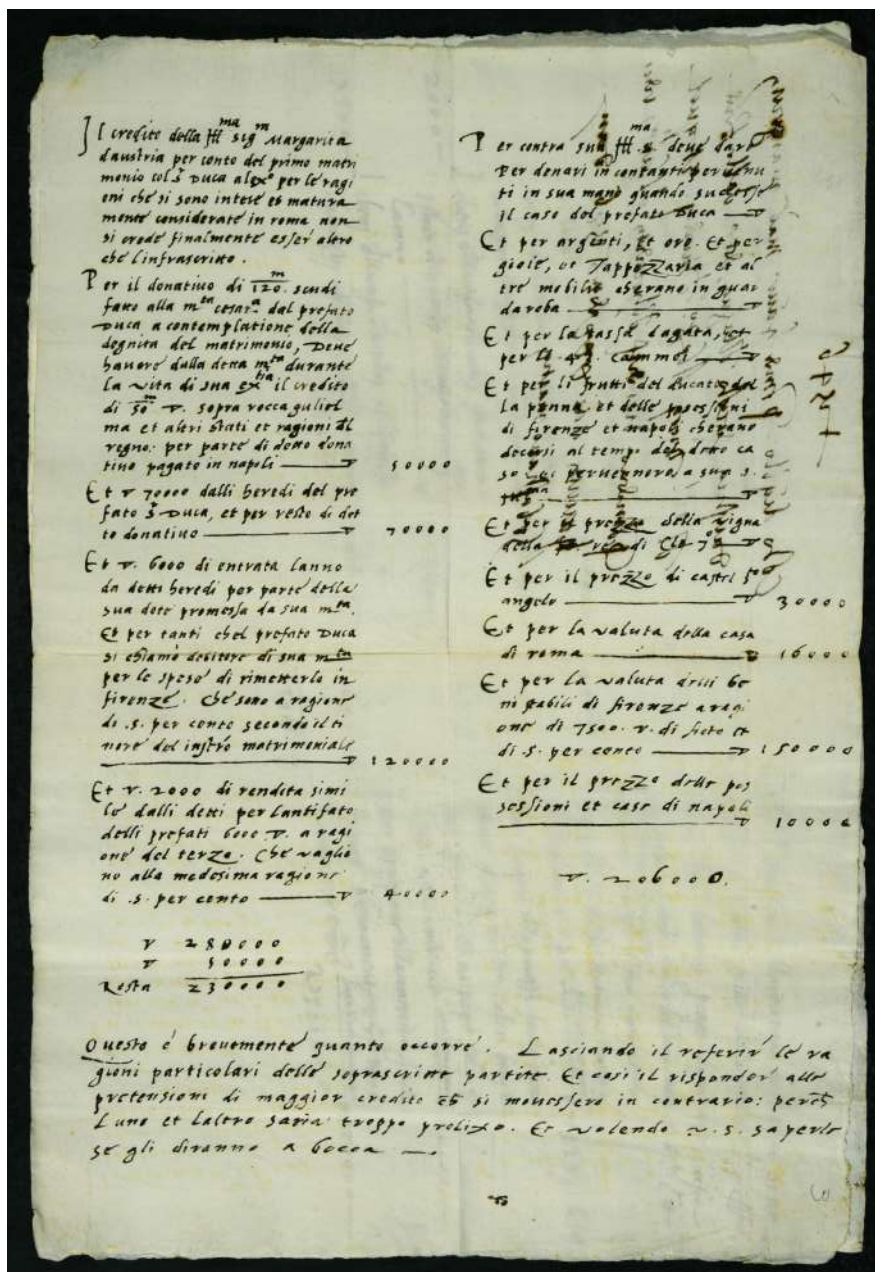 Il credito della Ill^ma sig^m Margarita
daustria per conto del primo matri
monio col S. Duca alex^o per le ragi
oni che si sono intese et matura
mente considerate in roma non
si crede finalmente esser altro
che l'infrascritto.
Per il donativo di 120^m scudi
fatto alla m^ta cesar^a dal prefato
Duca a contemplatione della
degnita del matrimonio, Deve
havere dalla detta m^ta durante
la vita di sua ex^tia il credito
di 50^m ▽. sopra rocca guliel
ma et altri stati et ragioni del
regno: per parte di detto dona
tivo pagato in napoli — ▽ 50000
Et ▽ 70000 dalli heredi del pre
fato S. Duca, et per resto di det
to donativo — ▽ 70000
Et ▽. 6000 di entrata lanno
da detti heredi per parte della
sua dote promessa da sua m^ta.
Et per tanti chel prefato Duca
si chiamò debitore di sua m^ta
per le spese di rimetterlo in
firenze. Che sono a ragione
di .5. per cento secondo il te
nore del instro matrimoniale
— ▽ 120000
Et ▽. 2000 di rendita simi
le dalli detti per lantifato
delli prefati 6000 ▽. a ragi
one del terzo. Che vaglio
no alla medesima ragione
di .5. per cento — ▽ 40000
▽ 280000
▽ 50000
Resta 230000
Per contra sua Ill^ma S. deve dare
Per denari in contanti pervenu
ti in sua mano quando successe
il caso del prefato Duca — ▽
Et per argenti, et oro. Et per
gioie, et Tappezzaria et al
tre mobilie cherano in guar
daroba — ▽
Et per la tassa dagata, et
per le 4 — ▽
Et per li frutti del Ducato del
la penna et delle possessioni
di firenze et napoli cherano
decorsi al tempo del detto ca
so et pervennero a sua S.
— ▽
Et per il prezzo della vigna
della — ▽
Et per il prezzo di castel s^to
angelo — ▽ 30000
Et per la valuta della casa
di roma — ▽ 16000
Et per la valuta delli be
ni stabili di firenze a ragi
one di 7500. ▽. di fitto et
di 5. per cento — ▽ 150000
Et per il prezzo delle pos
sessioni et case di napoli
— ▽ 10000
▽. 206000.
Questo é brevemente quanto occorre. Lasciando il referir le ra
gioni particolari delle soprascritte partite. Et cosi il risponder alle
pretensioni di maggior credito ch si movessero in contrario: perch
Luno et laltro saria troppo prolixo. Et volendo v. s. saperle
se gli diranno a bocca —.